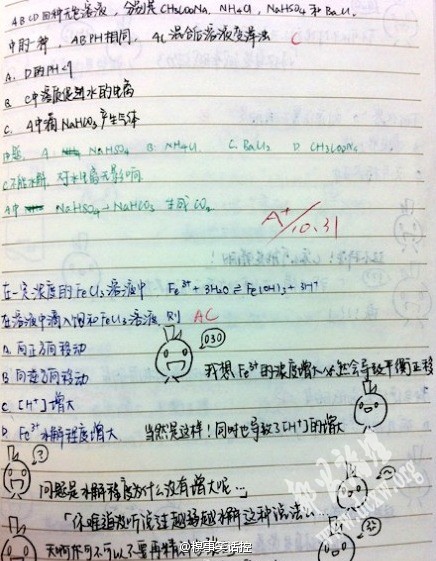 ABCD四种无色溶液，分别是CH₃COONa、NH₄Cl、NaHSO₄和BaCl₂
中的一种，AB PH相同，AC混合后溶液变浑浊 C
A. D的PH<7
B. C中溶质促进水的电离
C. A中滴NaHCO₃产生气体
A NaHSO₄ B. NH₄Cl C. BaCl₂ D. CH₃COONa
C不能水解，对水电离无影响
A中 NaHSO₄ NaHCO₃ 生成CO₂
A+/10.31
在一定浓度的FeCl₃溶液中 Fe³⁺+3H₂O⇌Fe(OH)₃+3H⁺
在溶液中滴入饱和FeCl₃溶液 则 AC
A. 向正方向移动
B 向逆方向移动
C. [H⁺]增大
D. Fe³⁺水解程度增大
我想Fe³⁺的浓度增大必然会导致平衡正移
当然是这样！同时也导致了[H⁺]的增大
问题是水解程度为什么没有增大呢…
「你难道没听说过越弱越水解这种说法么
天啊你可不可以不要再
@糗事笑话控